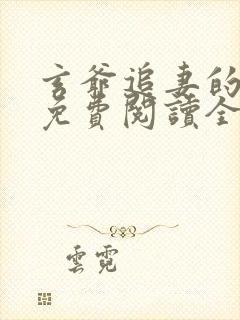 玄爺追妻的
免費閱讀全
雲霓